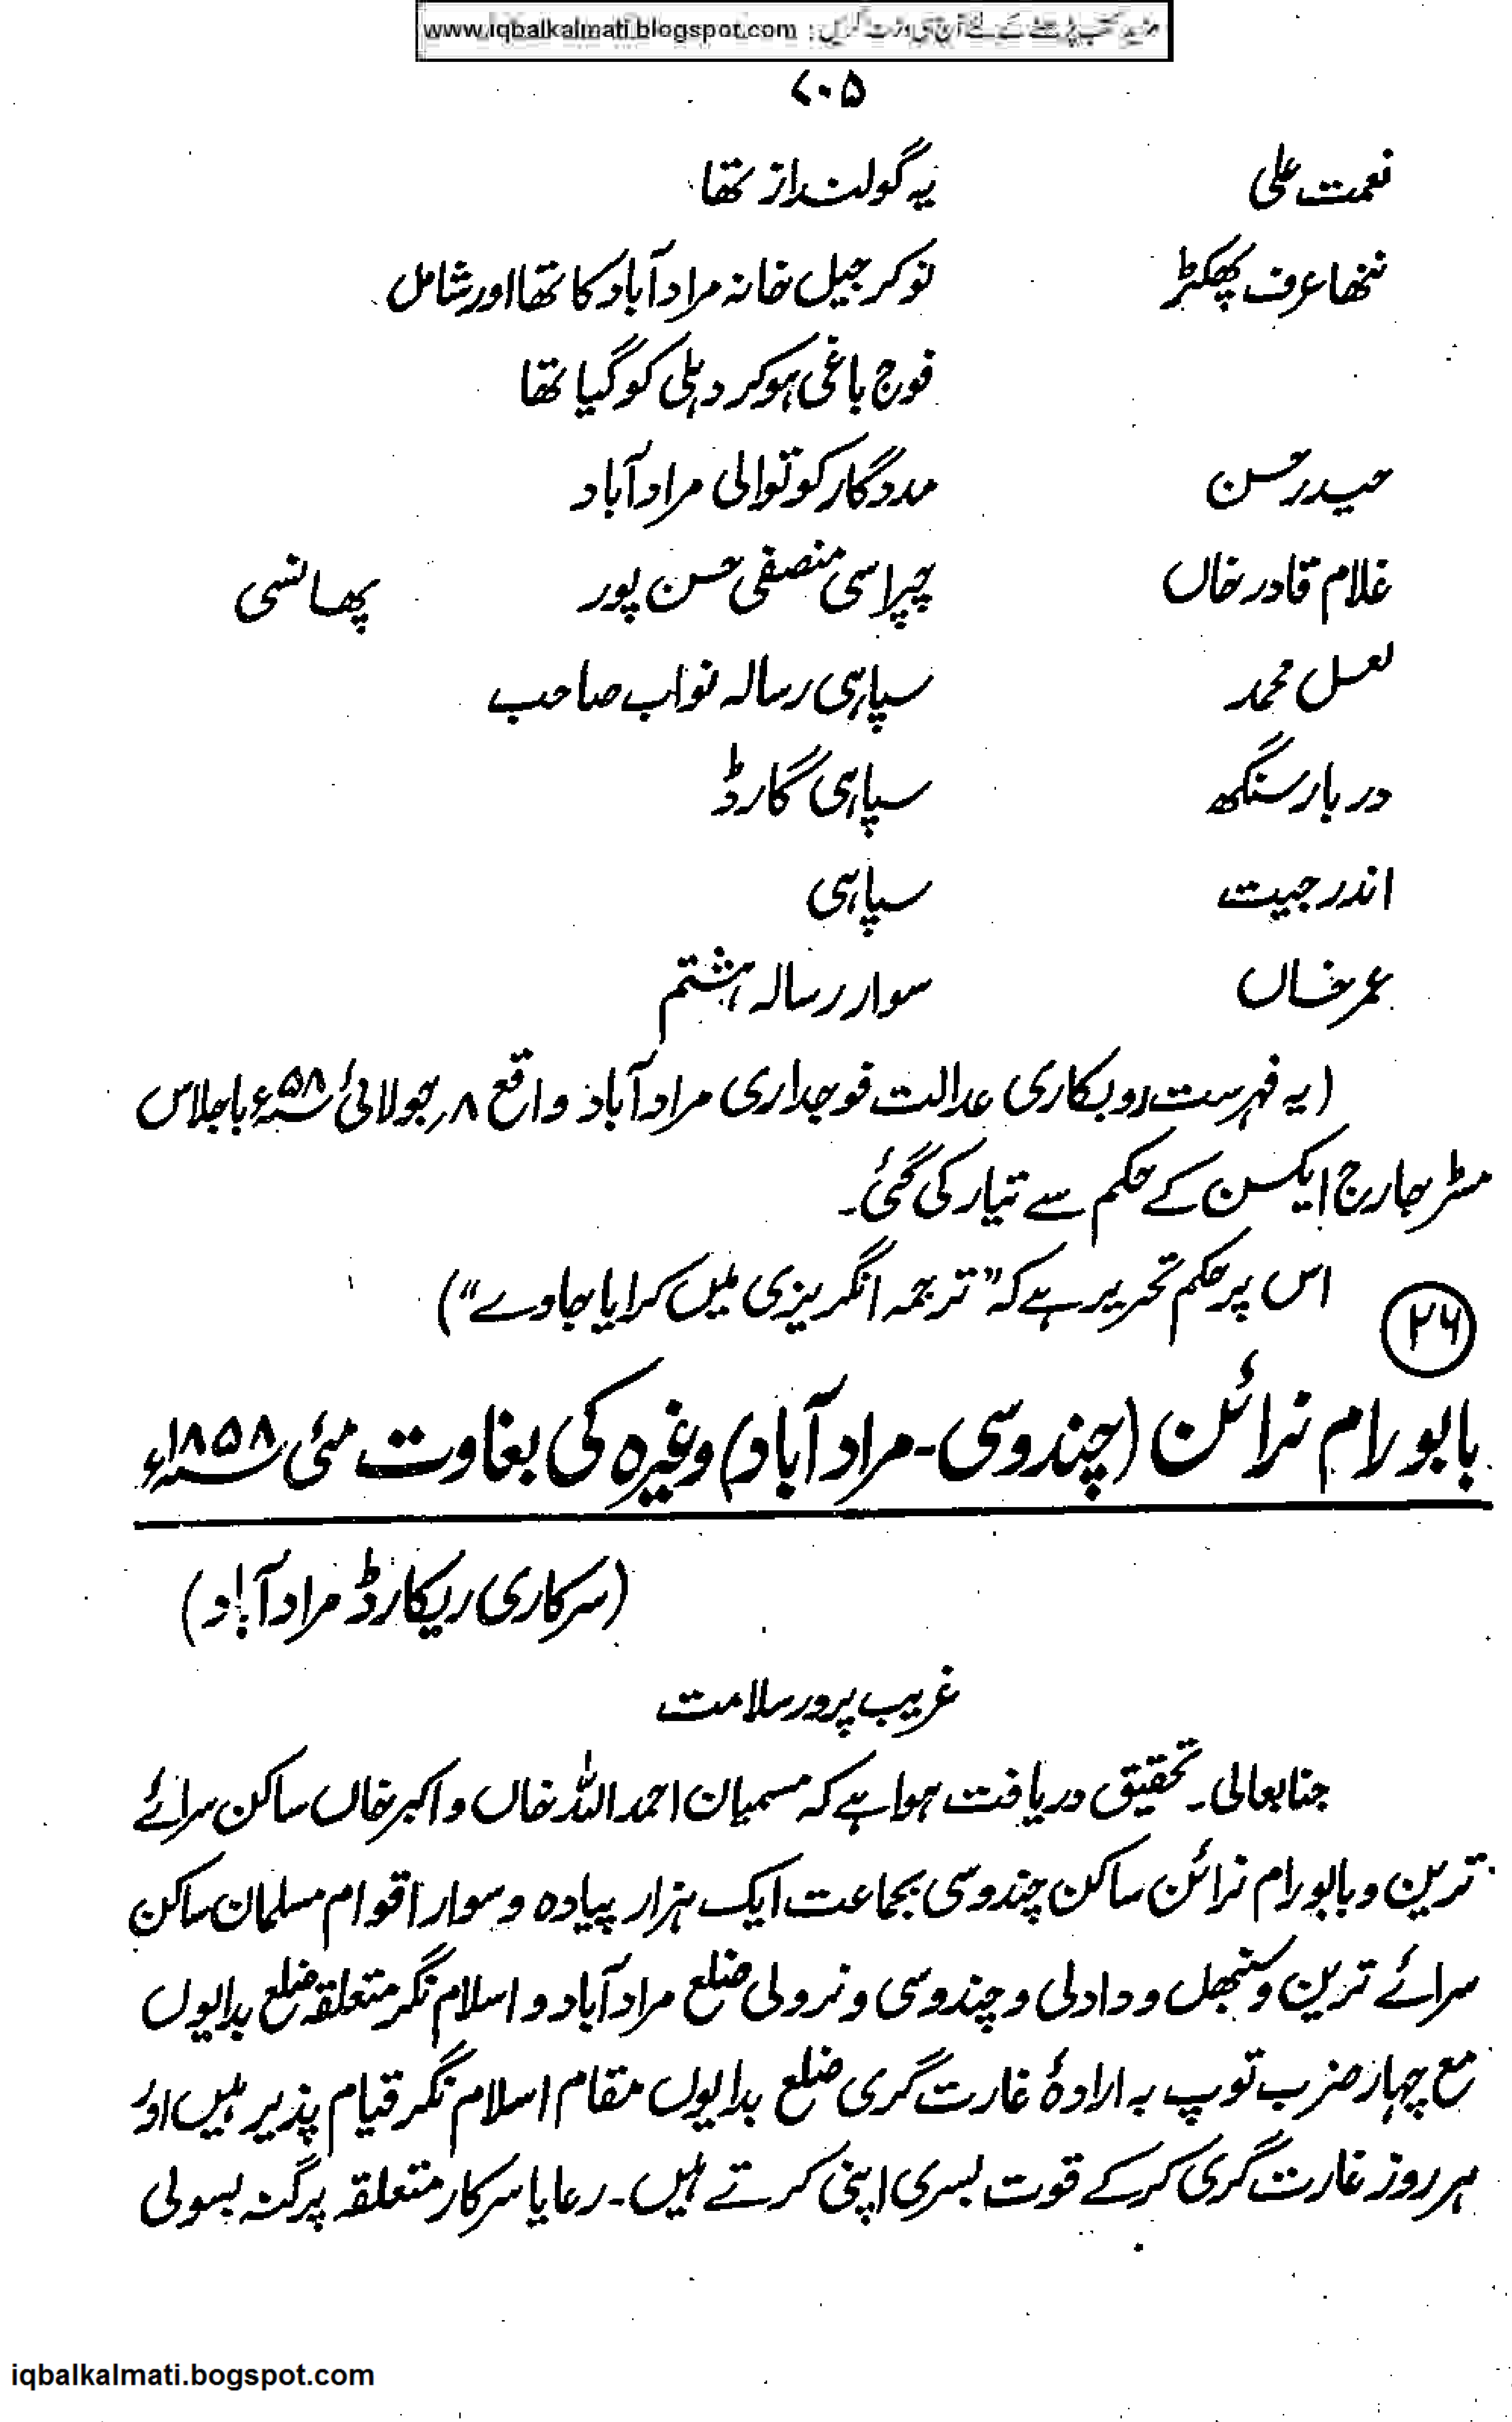 مزید کتب پڑھنے کے لئے آج ہی وزٹ کریں : www.iqbalkalmati.blogspot.com
۷۰۵
نعمت علی یہ گولنداز تھا
ننھا عرف پھکڑ نوکر جیل خانہ مرادآباد کا تھا اور شامل
فوج باغی ہوکر دہلی کو گیا تھا
حیدر حسن مددگار کوتوالی مرادآباد
غلام قادر خاں چپراسی منصفی حسن پور پھانسی
لعل محمد سپاہی رسالہ نواب صاحب
دربار سنگھ سپاہی گارڈ
اندر جیت سپاہی
عمر خاں سوار رسالہ ہشتم
(یہ فہرست روبکاری عدالت فوجداری مرادآباد واقع ۸؍جولائی ۵۸ء باجلاس
مسٹر جارج ایکسن کے حکم سے تیار کی گئی۔
اس پر حکم تحریر ہے کہ ”ترجمہ انگریزی میں کرایا جاوے“)
۲۶
بابو رام نرائن (چندوسی - مرادآباد) وغیرہ کی بغاوت مئی ۱۸۵۸ء
(سرکاری ریکارڈ مرادآباد)
غریب پرور سلامت
جنابعالی۔ تحقیق دریافت ہوا ہے کہ مسمیان احمد اللہ خاں و اکبر خاں ساکن سرائے
ترین و بابو رام نرائن ساکن چندوسی بجماعت ایک ہزار پیادہ و سوار اقوام مسلمان ساکن
سرائے ترین و سنبھل و دادلی و چندوسی و نرولی ضلع مرادآباد و اسلام نگر متعلقہ ضلع بدایوں
مع چہار ضرب توپ بہ ارادۂ غارت گری ضلع بدایوں مقام اسلام نگر قیام پذیر ہیں اور
ہر روز غارت گری کرکے قوت بسری اپنی کرتے ہیں۔ رعایا سرکار متعلقہ پرگنہ بسولی
iqbalkalmati.bogspot.com